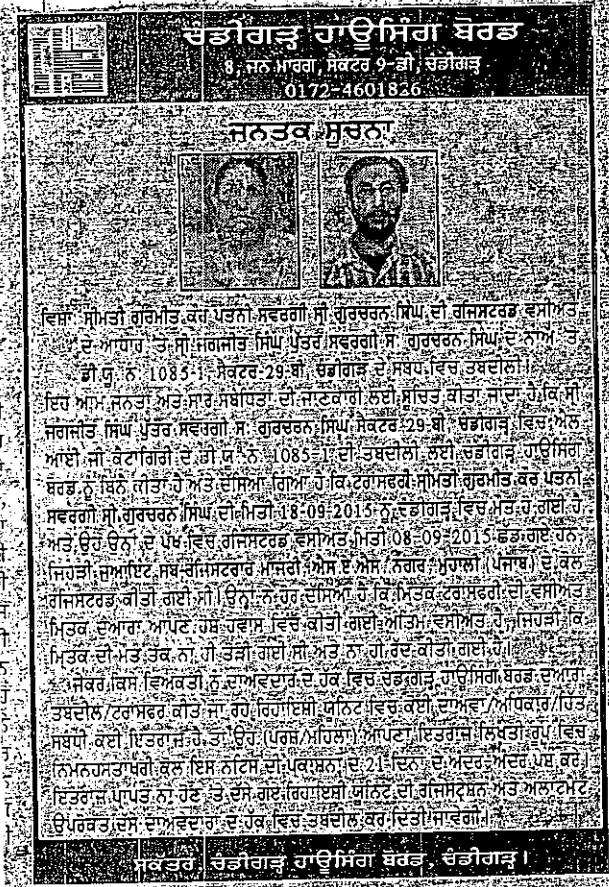 ਚੰਡੀਗੜ੍ਹ ਹਾਊਸਿੰਗ ਬੋਰਡ
8, ਜਨ ਮਾਰਗ, ਸੈਕਟਰ 9-ਡੀ, ਚੰਡੀਗੜ੍ਹ
0172-4601826
ਜਨਤਕ ਸੂਚਨਾ
ਵਿਸ਼ਾ: ਸ੍ਰੀਮਤੀ ਗੁਰਮੀਤ ਕੌਰ ਪਤਨੀ ਸਵਰਗੀ ਸ੍ਰੀ ਗੁਰਚਰਨ ਸਿੰਘ ਦੀ ਰਜਿਸਟਰਡ ਵਸੀਅਤ
ਦੇ ਆਧਾਰ 'ਤੇ ਸ੍ਰੀ ਜਗਜੀਤ ਸਿੰਘ ਪੁੱਤਰ ਸਵਰਗੀ ਸ. ਗੁਰਚਰਨ ਸਿੰਘ ਦੇ ਨਾਂਅ 'ਤੇ
ਡੀ.ਯੂ. ਨੰ. 1085-1, ਸੈਕਟਰ-29-ਬੀ, ਚੰਡੀਗੜ੍ਹ ਦੇ ਸਬੰਧ ਵਿਚ ਤਬਦੀਲੀ।
ਇਹ ਆਮ ਜਨਤਾ ਅਤੇ ਸਾਰੇ ਸਬੰਧਿਤਾਂ ਦੀ ਜਾਣਕਾਰੀ ਲਈ ਸੂਚਿਤ ਕੀਤਾ ਜਾਂਦਾ ਹੈ ਕਿ ਸ੍ਰੀ
ਜਗਜੀਤ ਸਿੰਘ ਪੁੱਤਰ ਸਵਰਗੀ ਸ. ਗੁਰਚਰਨ ਸਿੰਘ ਸੈਕਟਰ-29-ਬੀ, ਚੰਡੀਗੜ੍ਹ ਵਿਚ ਐਲ
ਆਈ ਜੀ ਕੈਟਾਗਿਰੀ ਦੇ ਡੀ.ਯੂ. ਨੰ. 1085-1 ਦੀ ਤਬਦੀਲੀ ਲਈ ਚੰਡੀਗੜ੍ਹ ਹਾਊਸਿੰਗ
ਬੋਰਡ ਨੂੰ ਬਿਨੈ ਕੀਤਾ ਹੈ ਅਤੇ ਦੱਸਿਆ ਗਿਆ ਹੈ ਕਿ ਟਰਾਂਸਫਰੀ ਸ੍ਰੀਮਤੀ ਗੁਰਮੀਤ ਕੌਰ ਪਤਨੀ
ਸਵਰਗੀ ਸ੍ਰੀ ਗੁਰਚਰਨ ਸਿੰਘ ਦੀ ਮਿਤੀ 18-09-2015 ਨੂੰ ਚੰਡੀਗੜ੍ਹ ਵਿਚ ਮੌਤ ਹੋ ਗਈ ਹੈ
ਅਤੇ ਉਹ ਉਨ੍ਹਾਂ ਦੇ ਪੱਖ ਵਿਚ ਰਜਿਸਟਰਡ ਵਸੀਅਤ ਮਿਤੀ 08-09-2015 ਛੱਡ ਗਏ ਹਨ,
ਜਿਹੜੀ ਜੁਆਇੰਟ ਸਬ-ਰਜਿਸਟਰਾਰ ਮਾਜਰੀ, ਐਸ ਏ ਐਸ ਨਗਰ, ਮੁਹਾਲੀ (ਪੰਜਾਬ) ਦੇ ਕੋਲ
ਰਜਿਸਟਰਡ ਕੀਤੀ ਗਈ ਸੀ। ਉਨ੍ਹਾਂ ਨੇ ਹੋਰ ਦੱਸਿਆ ਹੈ ਕਿ ਮ੍ਰਿਤਕ ਟਰਾਂਸਫਰੀ ਦੀ ਵਸੀਅਤ
ਮ੍ਰਿਤਕ ਦੁਆਰਾ ਆਪਣੇ ਹੋਸ਼ ਹਵਾਸ ਵਿਚ ਕੀਤੀ ਗਈ ਅੰਤਿਮ ਵਸੀਅਤ ਹੈ, ਜਿਹੜੀ ਕਿ
ਮ੍ਰਿਤਕ ਦੀ ਮੌਤ ਤੱਕ ਨਾ ਹੀ ਤੋੜੀ ਗਈ ਸੀ ਅਤੇ ਨਾ ਹੀ ਰੱਦ ਕੀਤੀ ਗਈ ਹੈ।
ਜੇਕਰ ਕਿਸੇ ਵਿਅਕਤੀ ਨੂੰ ਦਾਅਵੇਦਾਰ ਦੇ ਹੱਕ ਵਿਚ ਚੰਡੀਗੜ੍ਹ ਹਾਊਸਿੰਗ ਬੋਰਡ ਦੁਆਰਾ
ਤਬਦੀਲ/ਟਰਾਂਸਫਰ ਕੀਤੇ ਜਾ ਰਹੇ ਰਿਹਾਇਸ਼ੀ ਯੂਨਿਟ ਵਿਚ ਕੋਈ ਦਾਅਵਾ/ਅਧਿਕਾਰ/ਹਿੱਤ
ਸਬੰਧੀ ਕੋਈ ਇਤਰਾਜ਼ ਹੈ ਤਾਂ ਉਹ (ਪੁਰਸ਼/ਮਹਿਲਾ) ਆਪਣਾ ਇਤਰਾਜ਼ ਲਿਖਤੀ ਰੂਪ ਵਿਚ
ਨਿਮਨਹਸਤਾਖਰੀ ਕੋਲ ਇਸ ਨੋਟਿਸ ਦੀ ਪ੍ਰਕਾਸ਼ਨਾ ਦੇ 21 ਦਿਨਾਂ ਦੇ ਅੰਦਰ-ਅੰਦਰ ਪੇਸ਼ ਕਰੇ।
ਇਤਰਾਜ਼ ਪ੍ਰਾਪਤ ਨਾ ਹੋਣ 'ਤੇ ਦੱਸੇ ਗਏ ਰਿਹਾਇਸ਼ੀ ਯੂਨਿਟ ਦੀ ਰਜਿਸਟ੍ਰੇਸ਼ਨ ਅਤੇ ਅਲਾਟਮੈਂਟ
ਉਪਰੋਕਤ ਦੱਸੇ ਦਾਅਵੇਦਾਰਾਂ ਦੇ ਹੱਕ ਵਿਚ ਤਬਦੀਲ ਕਰ ਦਿੱਤੀ ਜਾਵੇਗੀ।
ਸਕੱਤਰ, ਚੰਡੀਗੜ੍ਹ ਹਾਊਸਿੰਗ ਬੋਰਡ, ਚੰਡੀਗੜ੍ਹ।